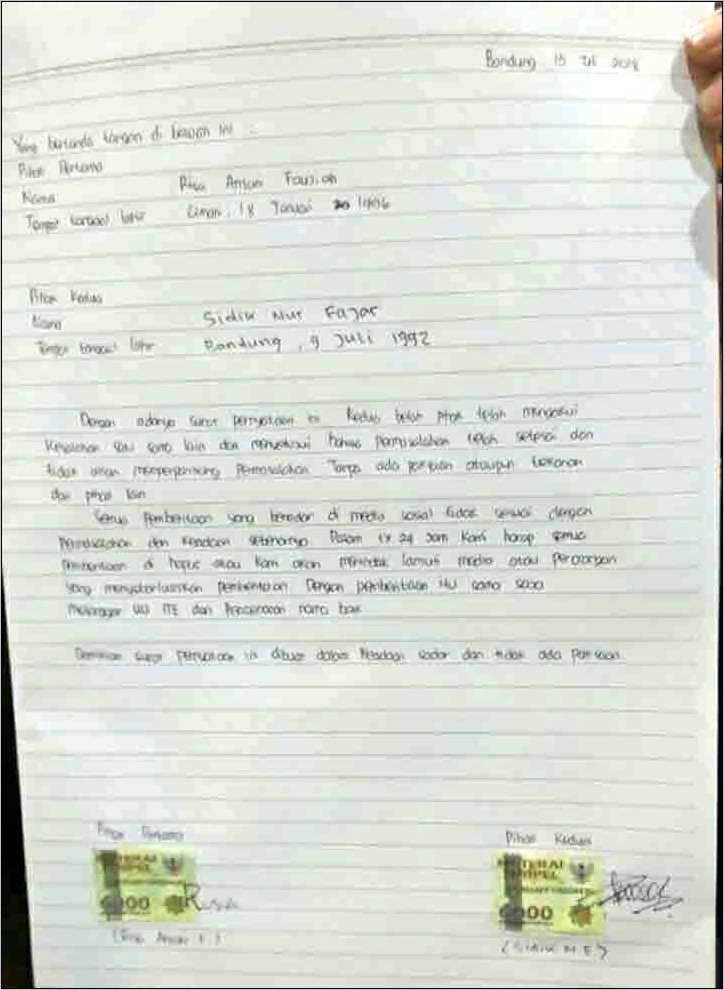 Bandung 15 Juli 2018
Yang bertanda tangan di bawah ini :
Pihak Pertama
Nama Ansuri Fauziah
Tempat tanggal lahir , 18 1996
Pihak Kedua
Nama Sidik Nur Fajar
Tempat tanggal lahir Bandung , 9 Juli 1992
Dengan adanya surat pernyataan ini Kedua belah pihak telah mengakui
Kesalahan satu sama lain dan menyetujui bahwa permasalahan telah selesai dan
tidak akan memperpanjang permasalahan Tanpa ada paksaan ataupun tekanan
dari pihak lain
Semua Pemberitaan yang beredar di media sosial tidak sesuai dengan
permasalahan dan keadaan sebenarnya Dalam 1x 24 Jam Kami harap semua
pemberitaan di hapus atau Kami akan menindak lanjuti media atau perorangan
yang pemberitaan Dengan pemberitaan itu sama saja
melanggar UU ITE dan Pencemaran nama baik
Demikian surat pernyataan ini dibuat dalam Keadaan sadar dan tidak ada paksaan
Pihak Pertama Pihak Kedua
METERAI METERAI
TEMPEL TEMPEL
6000 6000
( Ansuri F. ) ( Sidik N.F )